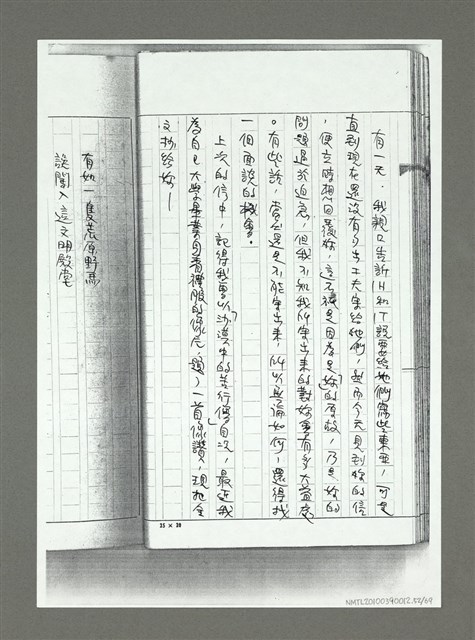 有一天，我親口告訴H和T說要給她們寫些東西，可是
直到現在還沒有分出工夫來給她們，然而今天見到妳的信
，便立時想回覆妳，這不祇是因為是「妳」的原故，乃是妳的
問題過於迫急，但我不知我所寫出來的對妳會有多大益處
。有些話，當然還是不能寫出來，所以無論如何，還得找
一個面說的機會。
上次的信中，記得我曾以「沙漠中的苦行僧」自況，最近我
為自己大學畢業的着禮服的像片，題了一首像讚，現抄全
文抄給妳——
有如一隻荒原野馬
誤闖入這文明殿堂
25 × 20
NMTL20100390012 52/69